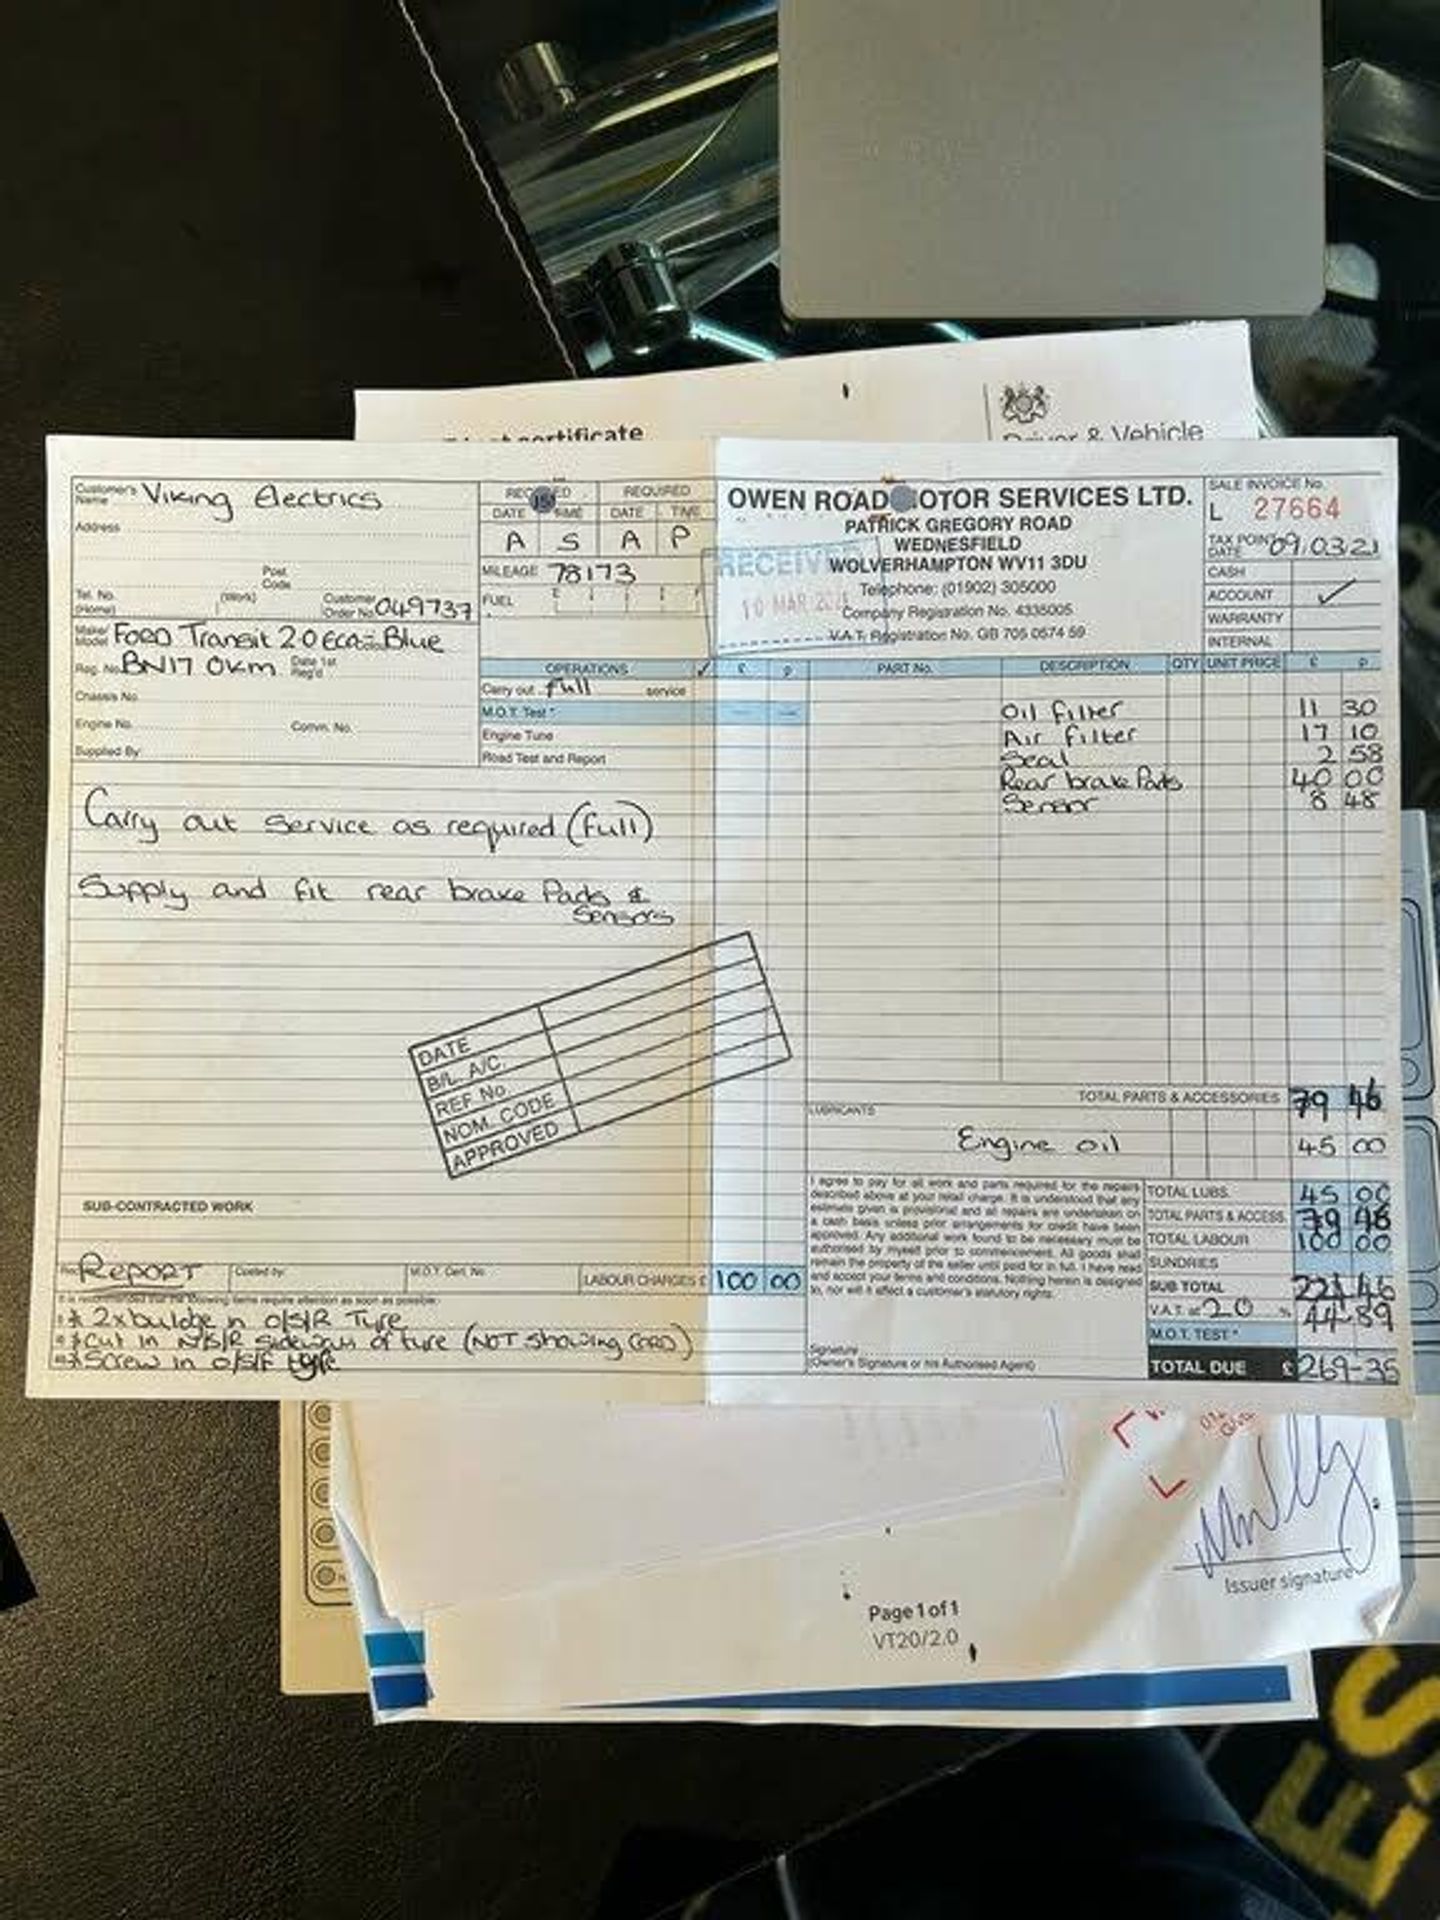 certificate
Driver & Vehicle
Customer's Name Viking Electrics
Address
Post Code
Tel. No. (Home) (Work) Customer Order No. 049737
Make/Model Ford Transit 2.0 Eco-Blue
Reg. No. BN17 OKM Date 1st Reg'd
Chassis No.
Engine No. Comm. No.
Supplied By:
REQUIRED
DATE TIME DATE TIME
A S A P
MILEAGE 78173
FUEL
OPERATIONS ✓ £ p
Carry out full service
M.O.T. Test *
Engine Tune
Road Test and Report
Carry out service as required (full)
Supply and fit rear brake Pads &
Sensors
DATE
B/L A/C.
REF No.
NOM. CODE
APPROVED
SUB-CONTRACTED WORK
REPORT Costed by: M.O.T. Cert. No. LABOUR CHARGES £ 100 00
It is recommended that the following items require attention as soon as possible:
* 2x bulge in o/s/R Tyre
* Cut in N/S/R sidewall of tyre (NOT showing CORD)
* Screw in o/s/F tyre
OWEN ROAD MOTOR SERVICES LTD.
PATRICK GREGORY ROAD
WEDNESFIELD
WOLVERHAMPTON WV11 3DU
Telephone: (01902) 305000
Company Registration No. 4335005
V.A.T. Registration No. GB 705 0574 59
RECEIVED
10 MAR 2021
SALE INVOICE No.
L 27664
TAX POINT DATE 09.03.21
CASH
ACCOUNT ✓
WARRANTY
INTERNAL
PART No. DESCRIPTION QTY UNIT PRICE £ p
Oil filter 11 30
Air filter 17 10
Seal 2 58
Rear brake Pads 40 00
Sensor 8 48
TOTAL PARTS & ACCESSORIES 79 46
LUBRICANTS
Engine oil 45 00
I agree to pay for all work and parts required for the repairs
described above at your retail charge. It is understood that any
estimate given is provisional and all repairs are undertaken on
a cash basis unless prior arrangements for credit have been
approved. Any additional work found to be necessary must be
authorised by myself prior to commencement. All goods shall
remain the property of the seller until paid for in full. I have read
and accept your terms and conditions. Nothing herein is designed
to, nor will it affect a customer's statutory rights.
Signature
(Owner's Signature or his Authorised Agent)
TOTAL LUBS. 45 00
TOTAL PARTS & ACCESS. 79 46
TOTAL LABOUR 100 00
SUNDRIES
SUB TOTAL 224 46
V.A.T. at 20 % 44-89
M.O.T. TEST *
TOTAL DUE £ 269-35
Issuer signature
Page 1 of 1
VT20/2.0